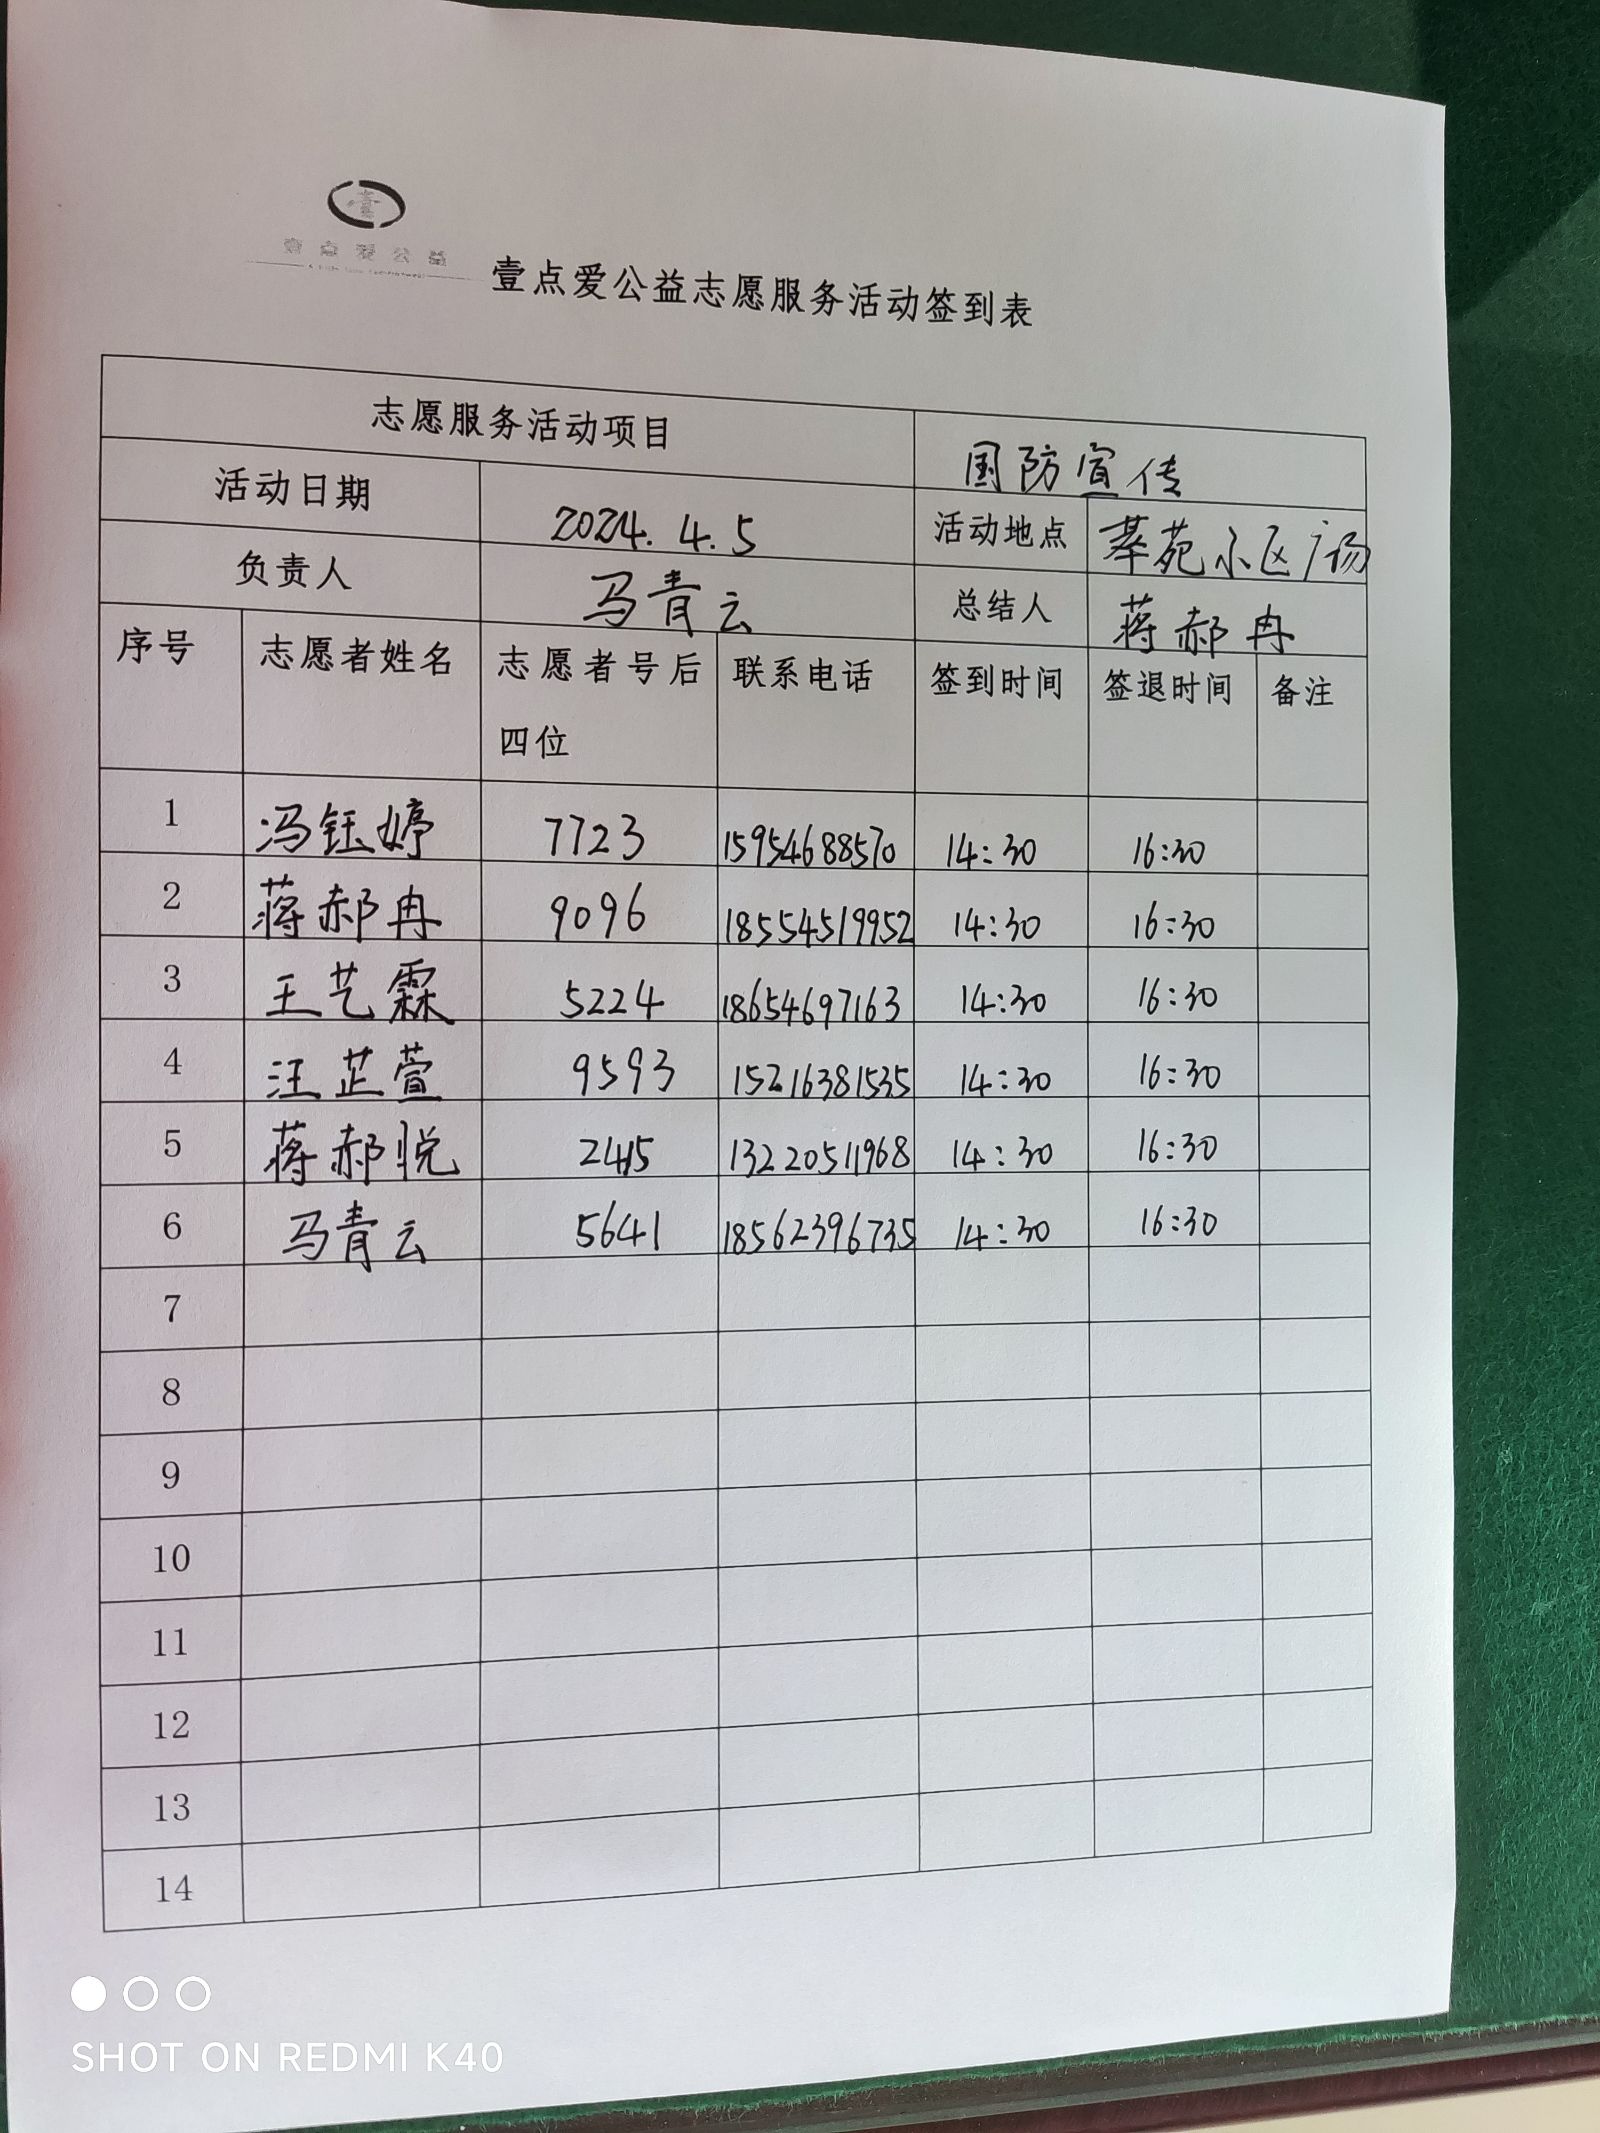 壹
壹点爱公益
壹点爱公益志愿服务活动签到表
志愿服务活动项目 国防宣传
活动日期 2024.4.5 活动地点 莘苑小区广场
负责人 马青云 总结人 蒋郝冉
序号 志愿者姓名 志愿者号后 联系电话 签到时间 签退时间 备注
四位
1 冯钰婷 7723 15954688570 14:30 16:30
2 蒋郝冉 9096 18554519952 14:30 16:30
3 王艺霖 5224 18654697163 14:30 16:30
4 汪芷萱 9593 15216381535 14:30 16:30
5 蒋郝悦 2415 13220511968 14:30 16:30
6 马青云 5641 18562396735 14:30 16:30
7
8
9
10
11
12
13
14
SHOT ON REDMI K40